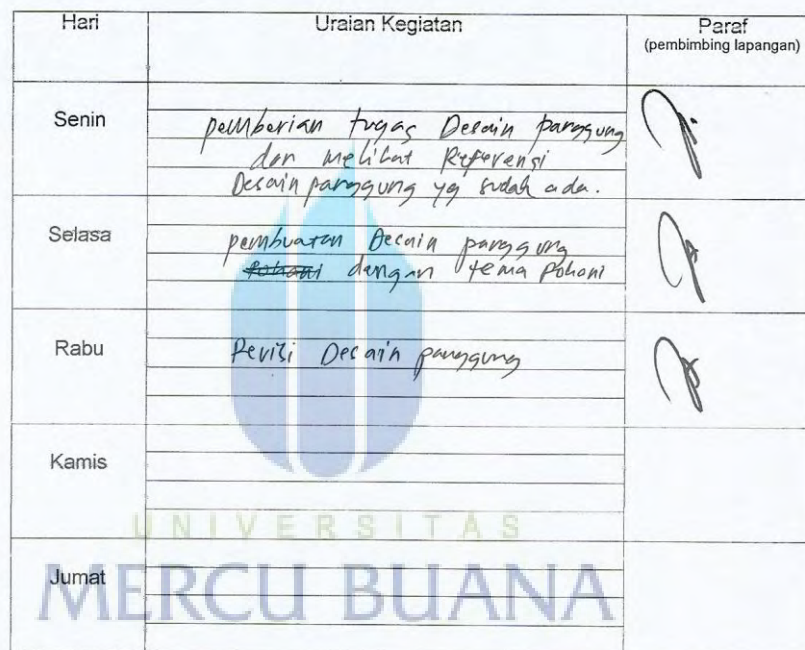 Hari Uraian Kegiatan Paraf
(pembimbing lapangan)
Senin pemberian tugas Desain panggung
dan melihat Referensi
Desain panggung yg sudah ada.
Selasa pembuatan Desain panggung
pohani dengan tema pohani
Rabu Revisi Desain panggung
Kamis
UNIVERSITAS
Jumat
MERCU BUANA